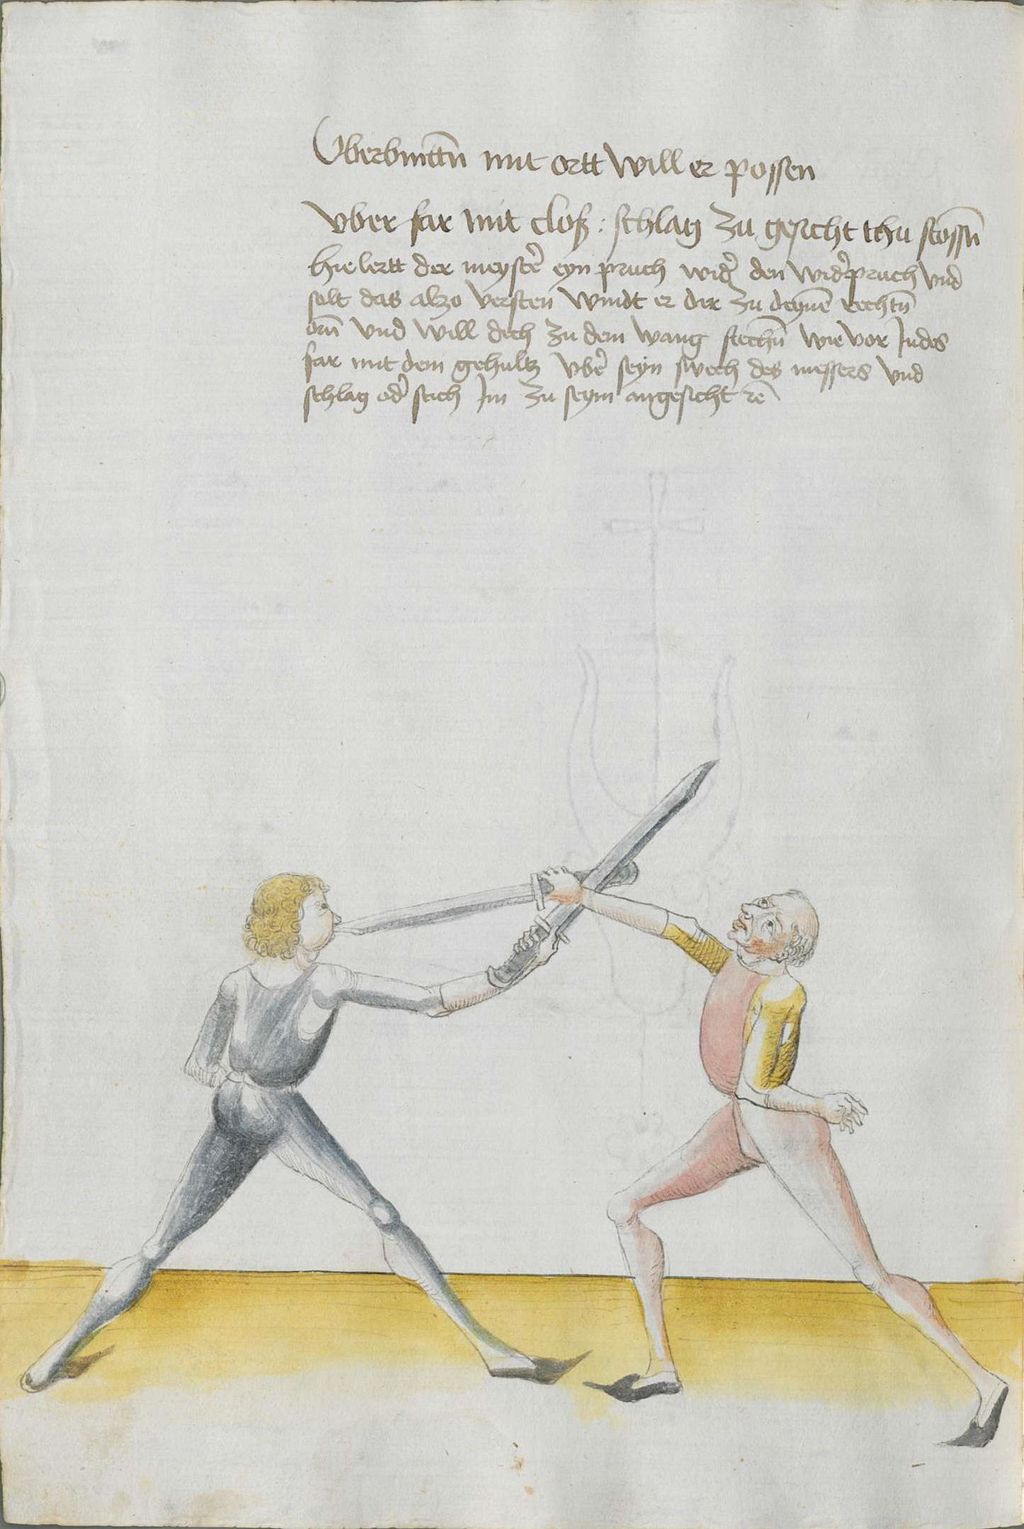 Vberbinttn̄ mit ortt will er possen
vber far mit cloß : schlag zu gesicht thu stossn̄
Hie lertt der meyster̄ eyn pruch wid' den wid'pruch vnd
solt das alzo versten windt er dir zu deynē rechtn̄
orn̄ vnd will dich zu dem wang stechn̄ wie vor Indes
far mit dem gehultz vbe' seyn swech des messers vnd
schlag od' stich Im zu seym angesicht